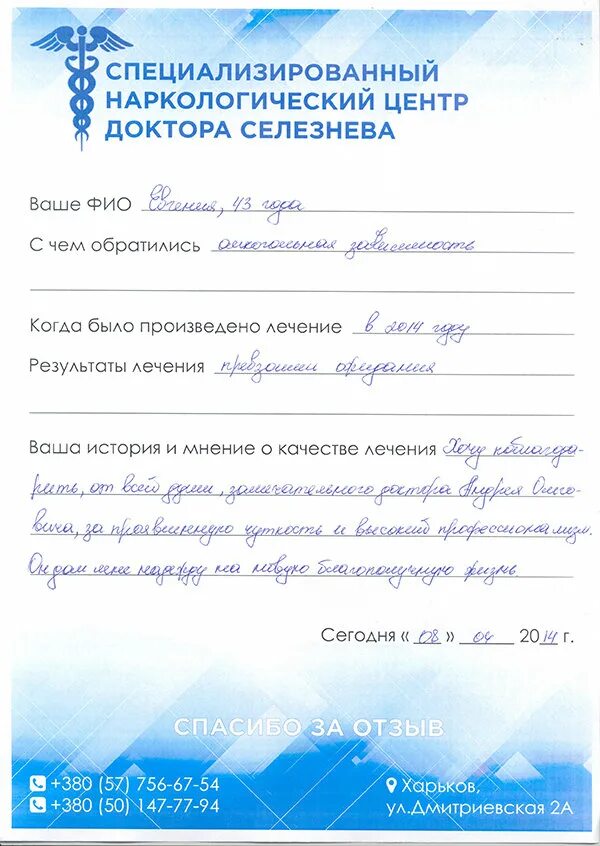 СПЕЦИАЛИЗИРОВАННЫЙ
НАРКОЛОГИЧЕСКИЙ ЦЕНТР
ДОКТОРА СЕЛЕЗНЕВА
Ваше ФИО Евгения, 43 года
С чем обратились алкогольная зависимость
Когда было произведено лечение в 2014 году
Результаты лечения превзошли ожидания
Ваша история и мнение о качестве лечения Хочу поблагода-
рить, от всей души, замечательного доктора Андрея Олего-
вича, за проявленную чуткость и высокий профессионализм.
Он дал мне надежду на новую благополучную жизнь.
Сегодня « 08 » 04 2014 г.
СПАСИБО ЗА ОТЗЫВ
+380 (57) 756-67-54
+380 (50) 147-77-94
Харьков,
ул.Дмитриевская 2А